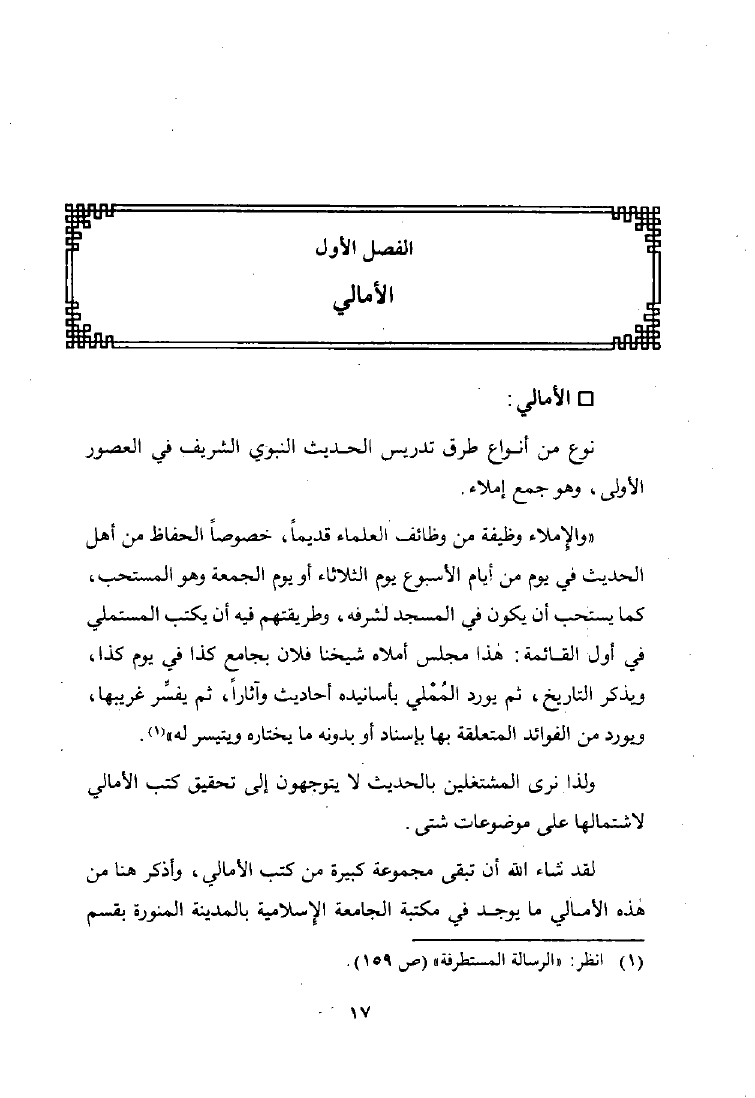 الفصل الأول
الأمالي
□ الأمالي:
نوع من أنواع طرق تدريس الحديث النبوي الشريف في العصور
الأولى، وهو جمع إملاء.
«والإملاء وظيفة من وظائف العلماء قديماً، خصوصاً الحفاظ من أهل
الحديث في يوم من أيام الأسبوع يوم الثلاثاء أو يوم الجمعة وهو المستحب،
كما يستحب أن يكون في المسجد لشرفه، وطريقتهم فيه أن يكتب المستملي
في أول القائمة: هٰذا مجلس أملاه شيخنا فلان بجامع كذا في يوم كذا،
ويذكر التاريخ، ثم يورد المُمْلي بأسانيده أحاديث وآثاراً، ثم يفسِّر غريبها،
ويورد من الفوائد المتعلقة بها بإسناد أو بدونه ما يختاره ويتيسر له»(١).
ولذا نرى المشتغلين بالحديث لا يتوجهون إلى تحقيق كتب الأمالي
لاشتمالها على موضوعات شتى.
لقد شاء الله أن تبقى مجموعة كبيرة من كتب الأمالي، وأذكر هنا من
هٰذه الأمالي ما يوجد في مكتبة الجامعة الإسلامية بالمدينة المنورة بقسم
(١) انظر: «الرسالة المستطرفة» (ص ١٥٩).
١٧